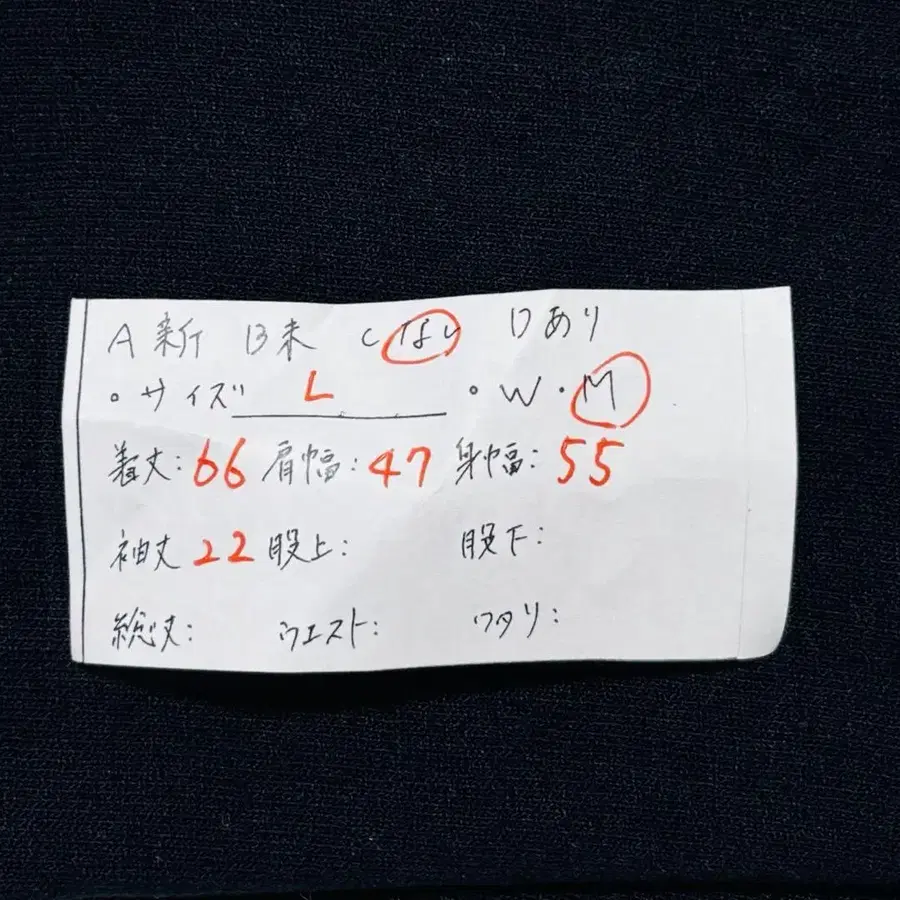 A 新 B 未 C なし D あり
・サイズ L ・W・M
着丈:66 肩幅:47 身幅:55
袖丈 22 股上: 股下:
総丈: ウエスト: ワタリ: